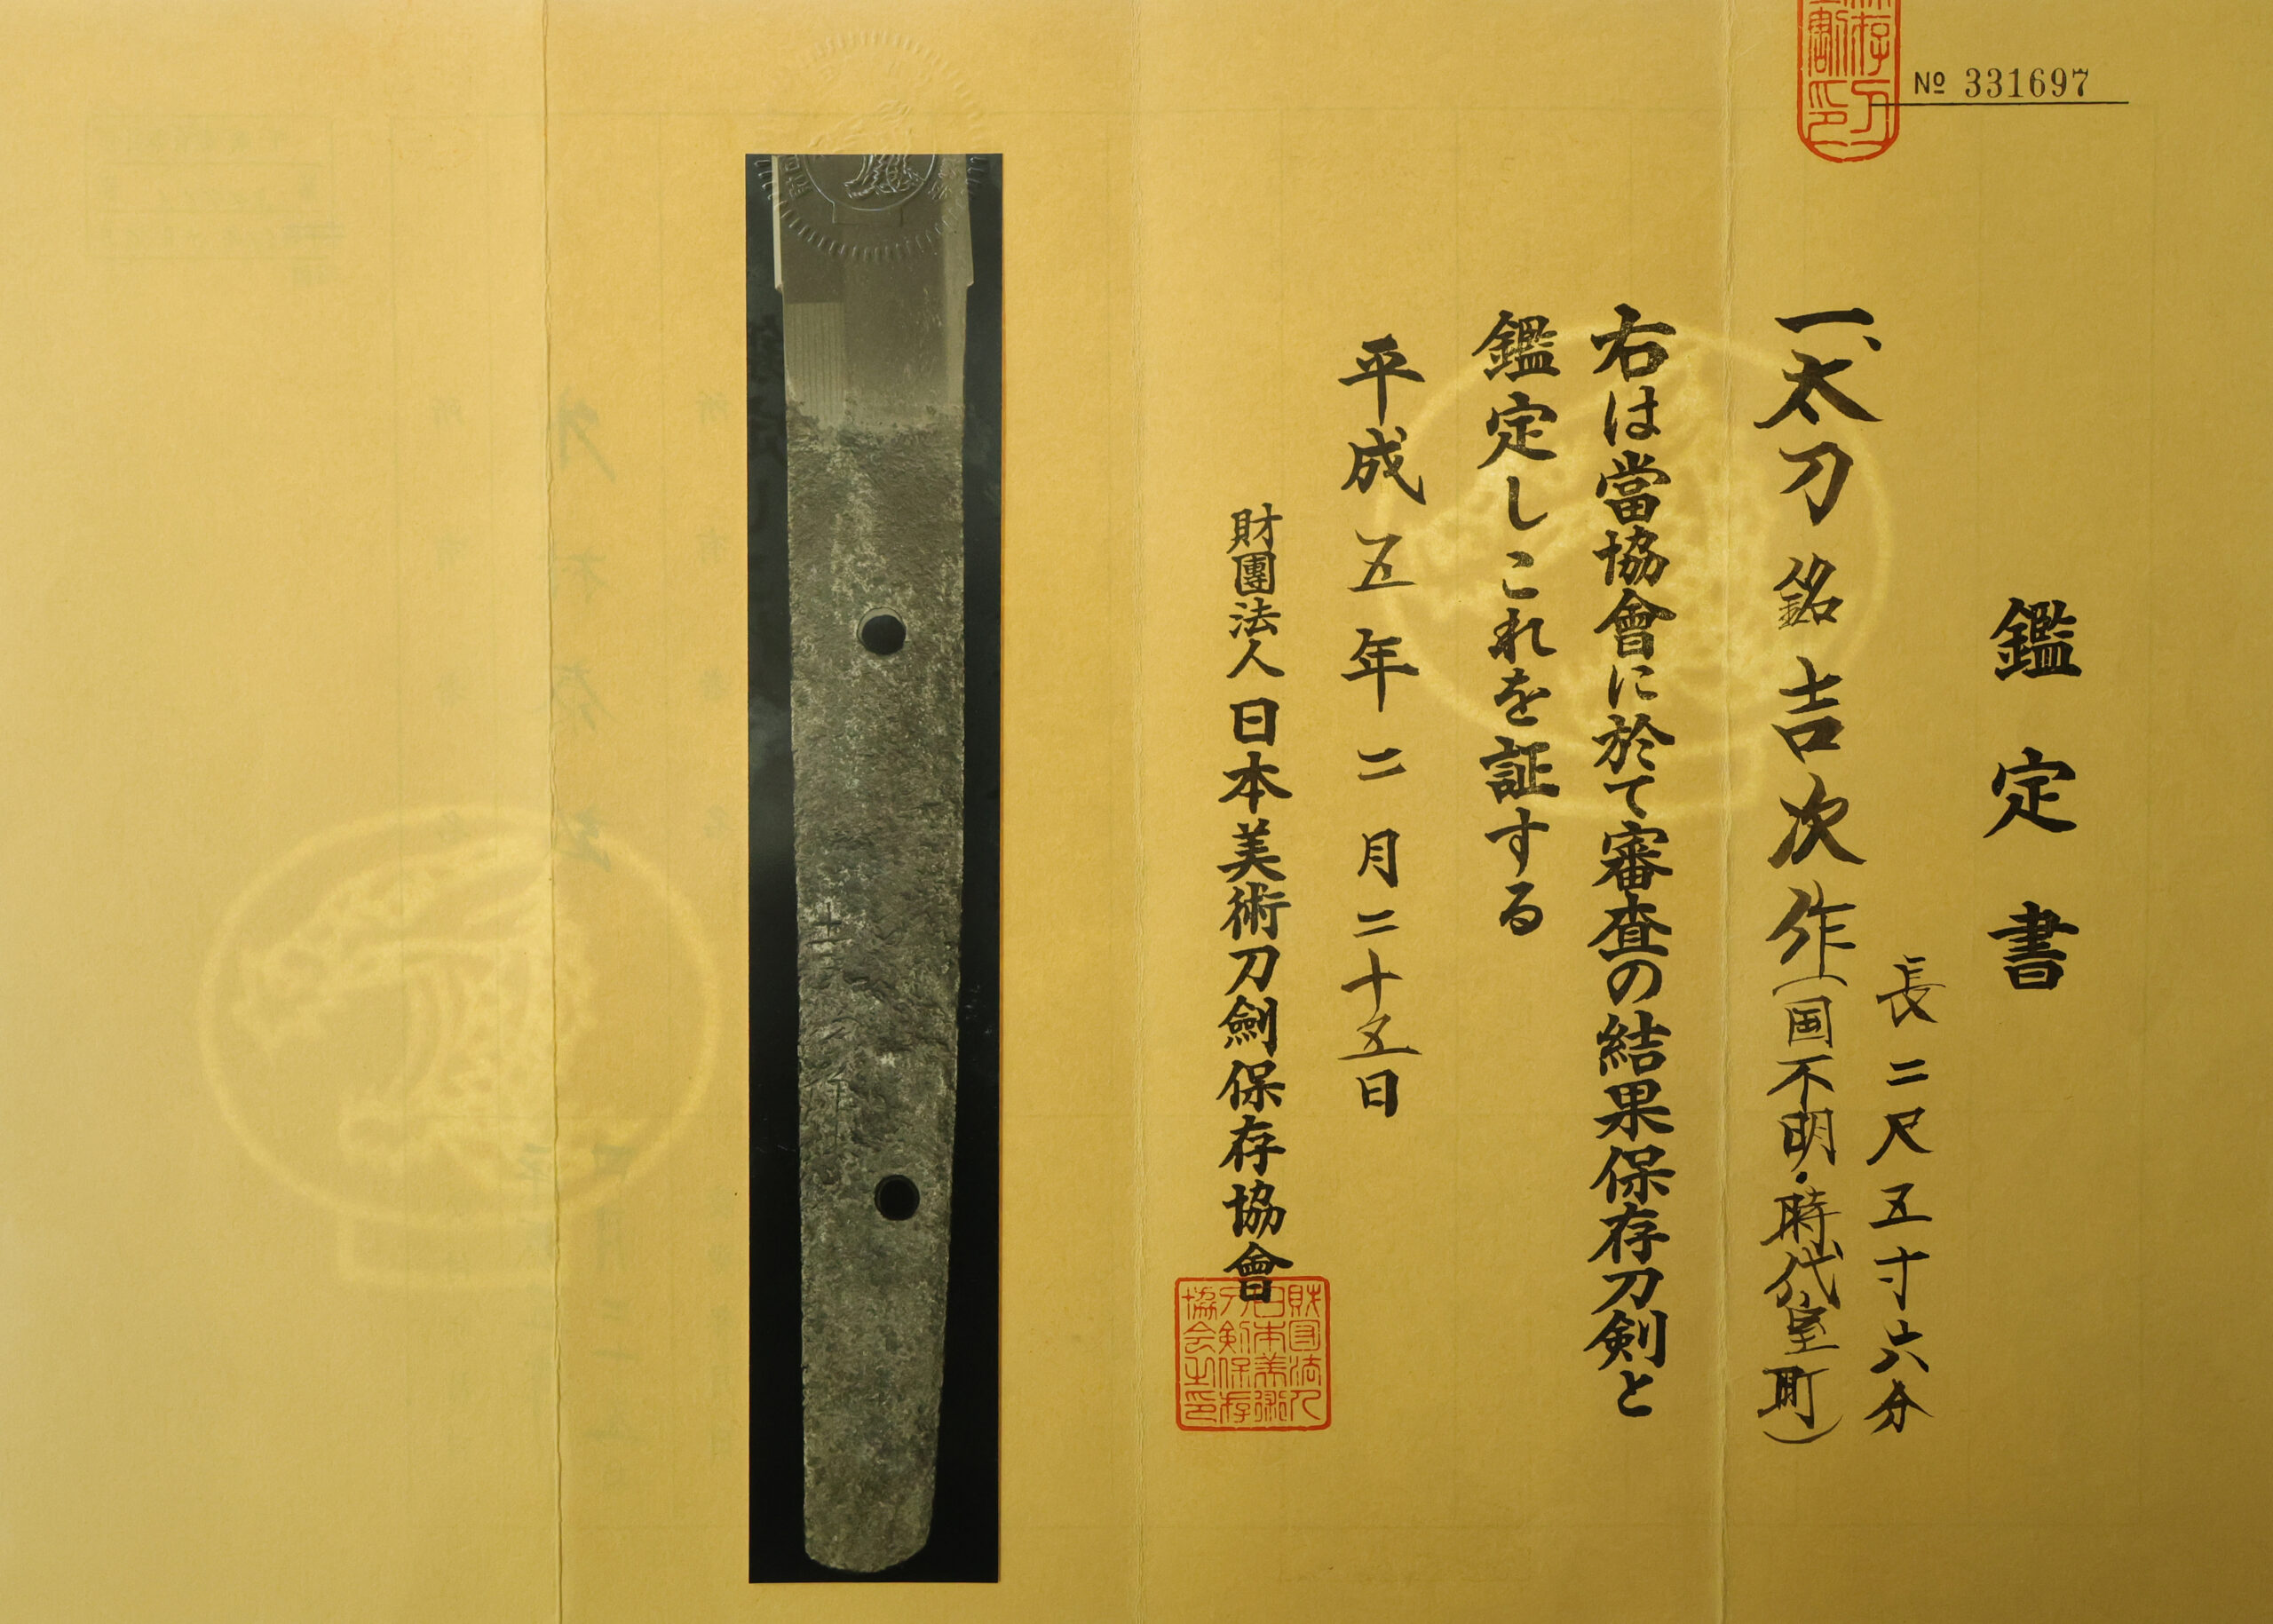 No 331697
鑑定書
長二尺五寸六分
一、太刀 銘 吉次作(国不明・時代室町)
右は當協會に於て審査の結果保存刀剣と
鑑定しこれを証する
平成五年二月二十五日
財團法人日本美術刀劍保存協會
財団法人
日本美術
刀剣保存
協会之印